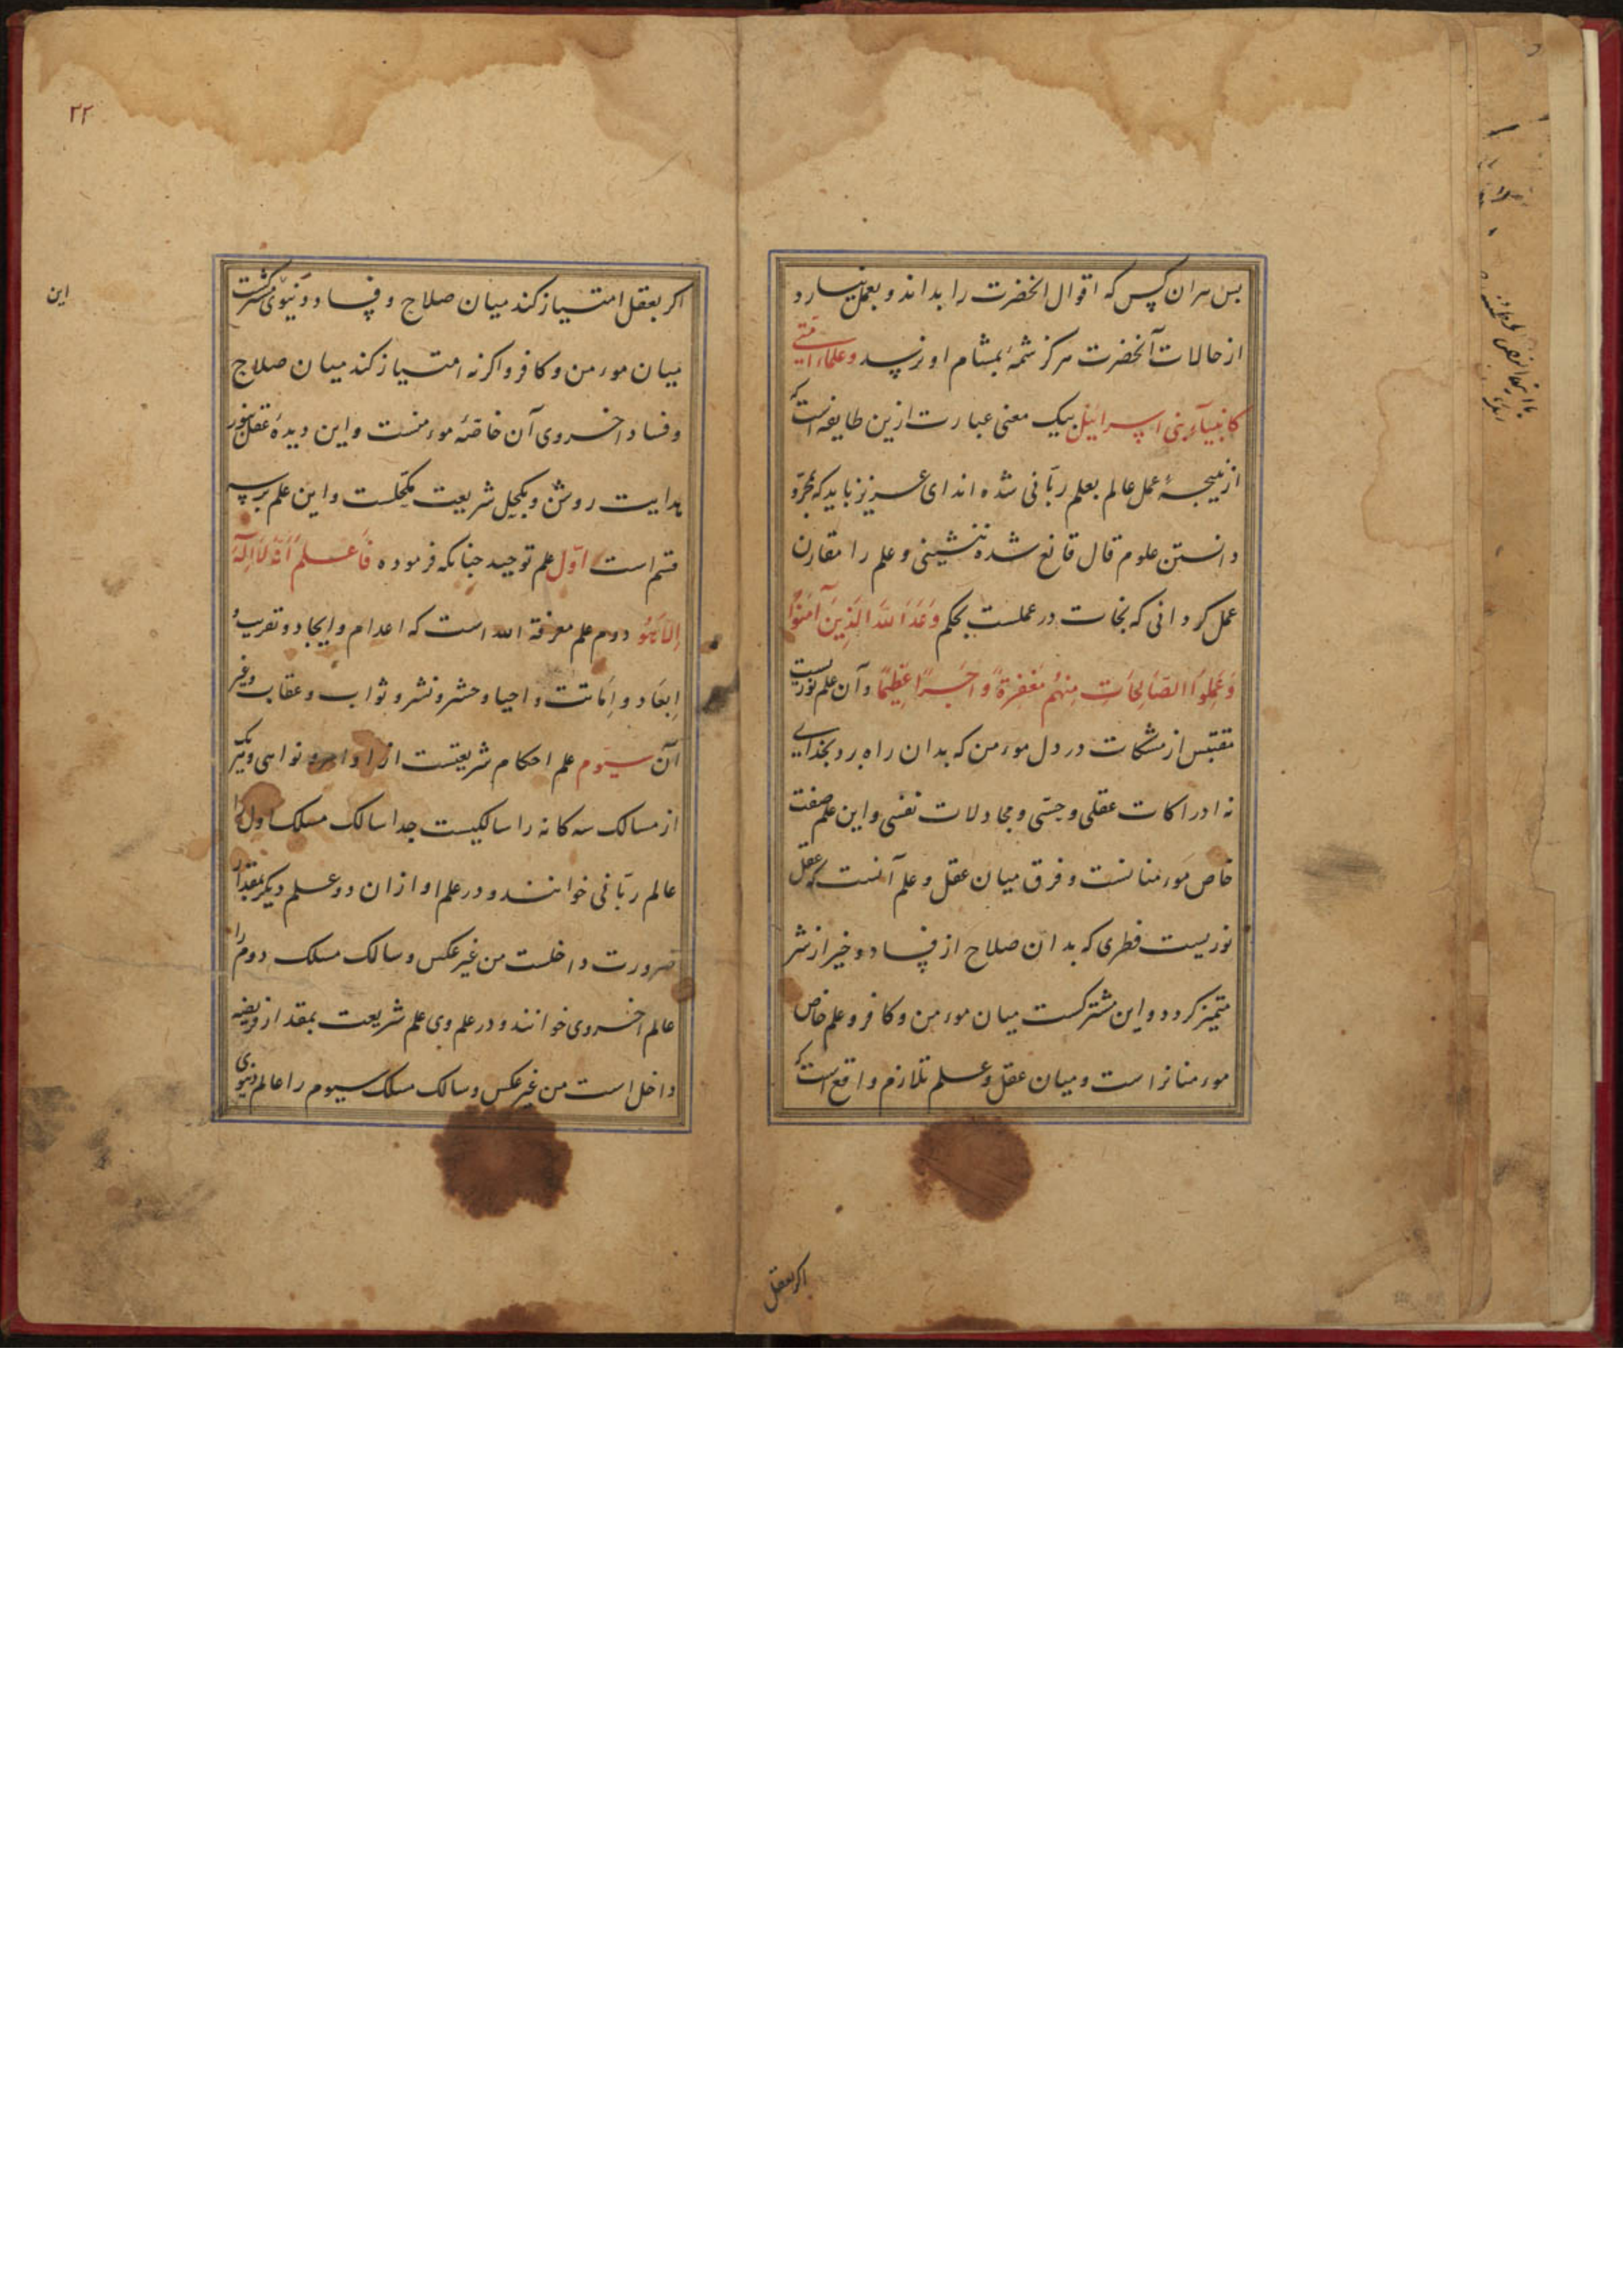 بس هران کس که اقوال انحضرت را بداند و بعمل نیارد
از حالات آنحضرت هرکز شمهٔ بمشام او نرسد و علماء امتی
کانبیآء بنی اسرائیل بیک معنی عبارت ازین طایفه است که
از نتیجهٔ عمل عالم بعلم ربّانی شده اند ای عزیز باید که بمجرّد
دانستن علوم قال قانع شده ننشینی و علم را مقارن
عمل کردانی که نجات در عملست بحکم وَعَدَ اللّه الَّذِینَ آمَنُوا
وَعَمِلُوا الصّالِحَاتِ مِنهُم مَغفِرَةً وَ اَجرًا عَظِیمًا و آن علم نوریست
مقتبس از مشکات در دل موءمن که بدان راه برد بخدای
نه ادراکات عقلی و حسّی و مجادلات نفسی و این علم صفت
خاص موءمنانست و فرق میان عقل و علم آنست که عقل
نوریست فطری که بدان صلاح از فساد و خیر از شر
متمیز کردد و این مشترکست میان موءمن و کافر و علم خاص
موءمنانراست و میان عقل و علم تلازم واقع است که
اکر بعقل
۲۲
این
اکر بعقل امتیاز کند میان صلاح و فساد دنیوی مشترکست
میان موءمن و کافر و اکر نه امتیاز کند میان صلاح
و فساد اخروی آن خاصّهٔ موءمنست و این دیدهٔ عقلش بنور
هدایت روشن و بکحل شریعت مکحّلست و این علم بر سه
قسم است اوّل علم توحید جنانکه فرموده فَاعلَم اَنَّهُ لَا اِلٰهَ
اِلّا هُوَ دوم علم معرفة الله است که اعدام و ایجاد و تقریب و
اِبعَاد و اِمَاتت و احیا و حشر و نشر و ثواب و عقاب و غیر
آن سیوم علم احکام شریعتست از اوامر و نواهی و هر یکی
از مسالک سه کانه را سالکیست جدا سالک مسلک اول را
عالم ربّانی خوانند و در علم او از ان دو علم دیکر بمقدار
ضرورت داخلست من غیر عکس و سالک مسلک دوم را
عالم اخروی خوانند و در علم وی علم شریعت بمقدار فریضه
داخل است من غیر عکس و سالک مسلک سیوم را عالم دنیوی